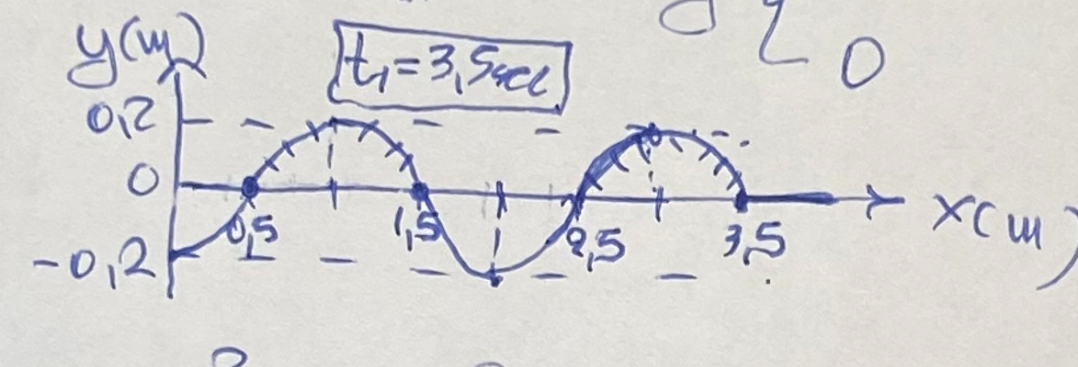 y(m)
t₁=3,5sec
0
0,2
0
0,5
1,5
2,5
3,5
x(m)
-0,2